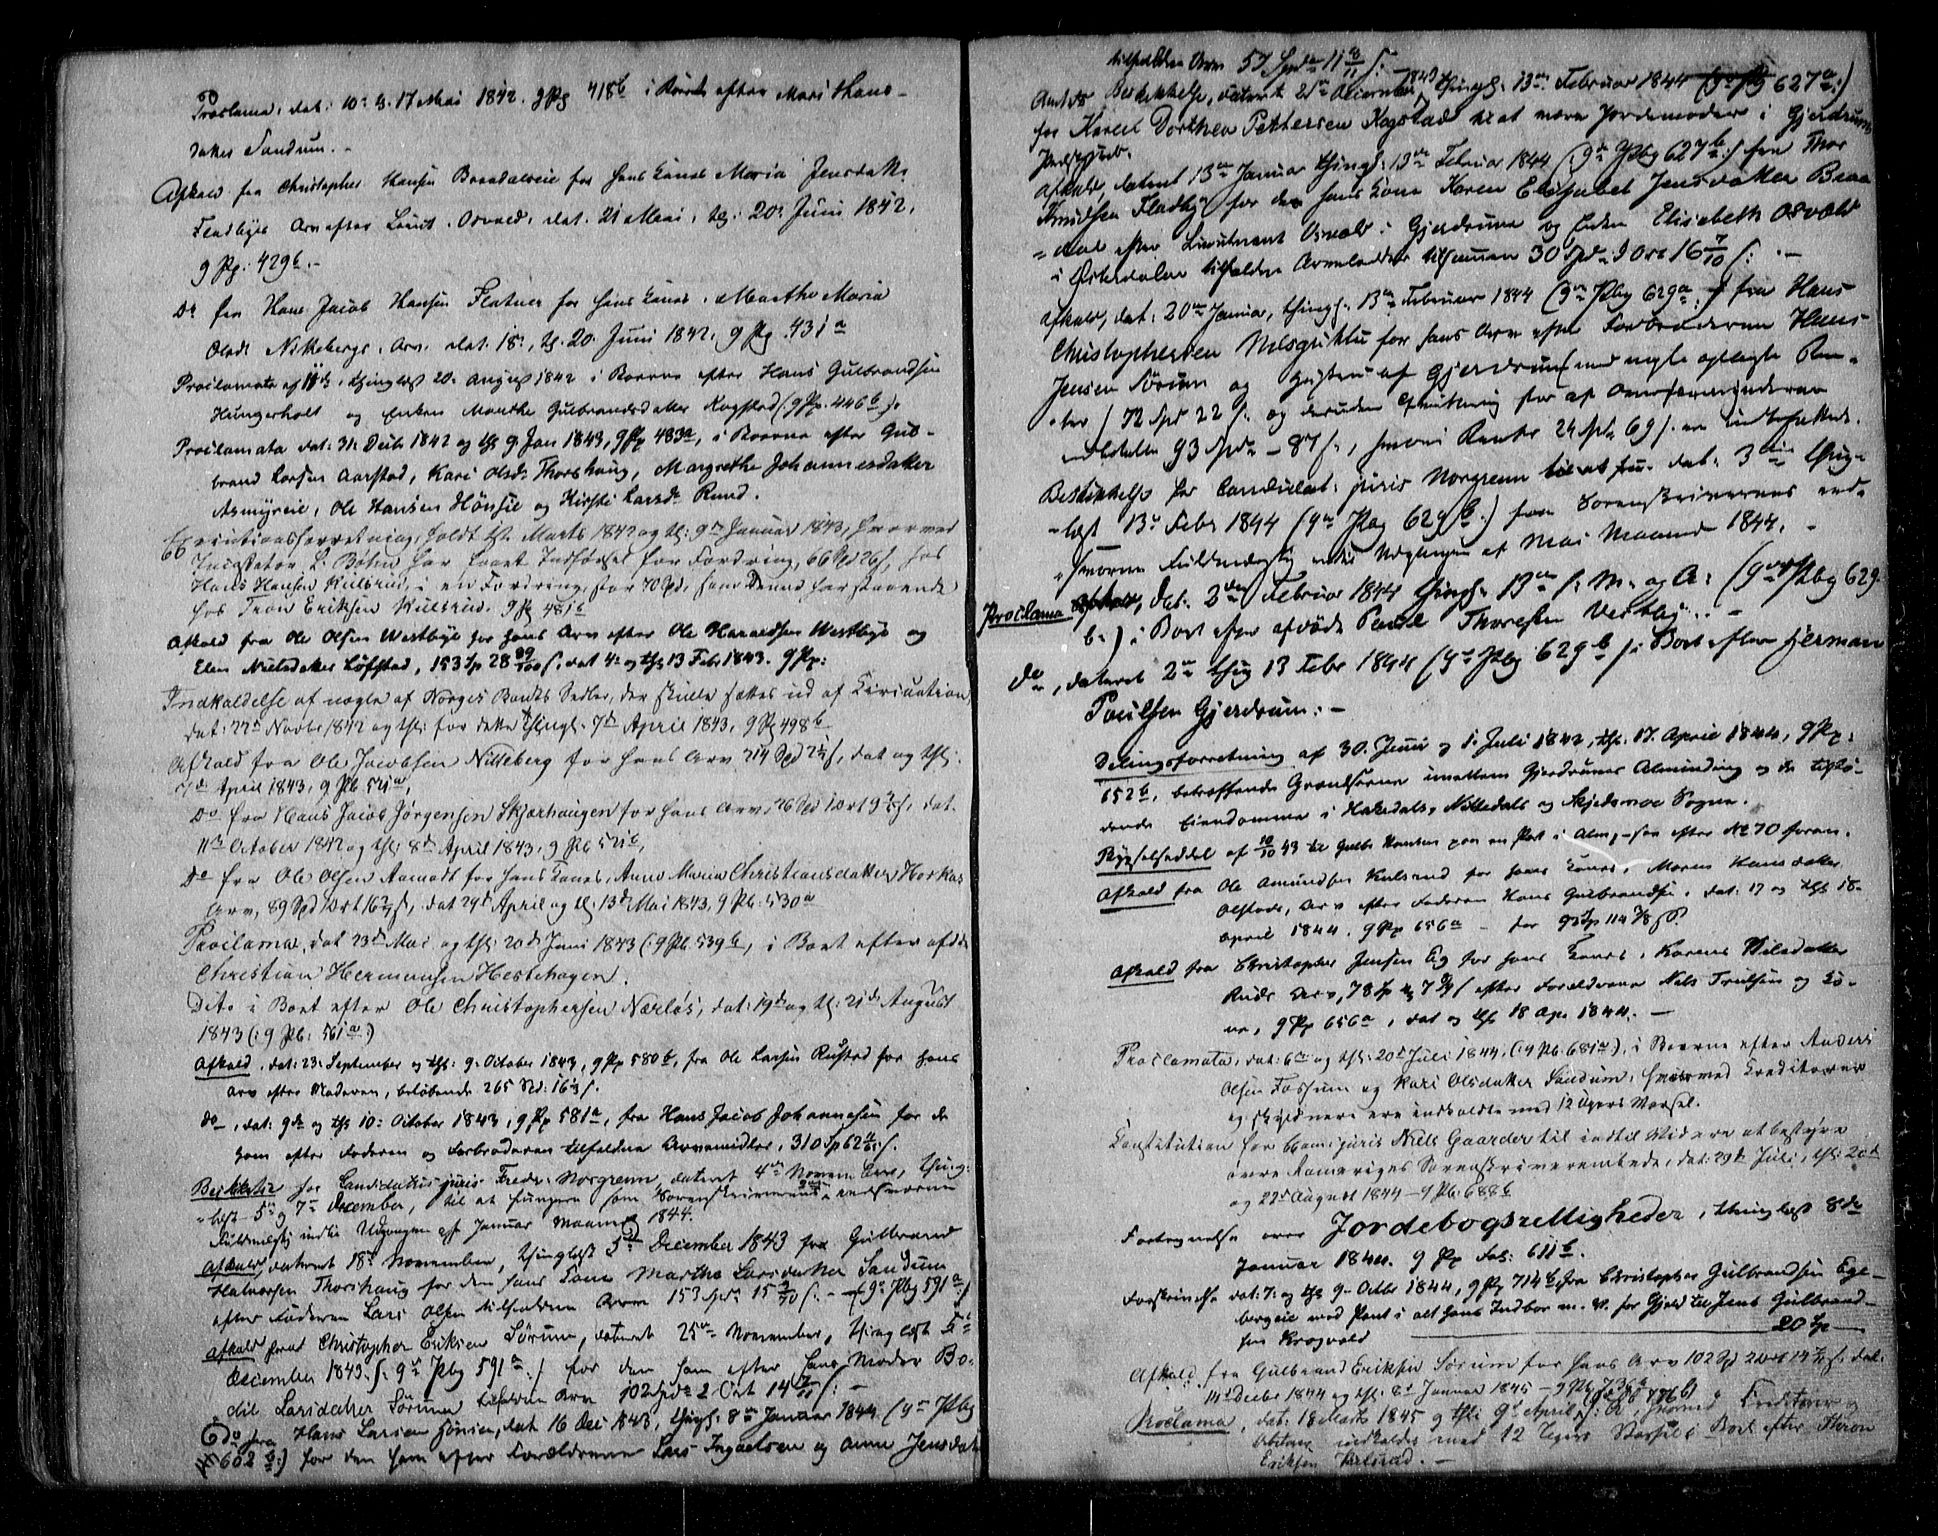 Proclama, dat: 10 & 17 Mai 1842. 9 Pg 418b i Boet efter Mari Hans-
datter Sandum.-
Afkald fra Christopher Hansen Braadalseie for hans Kones Maria Jensdatter
Fladbyes Arv efter Lieut. Osvald, dat. 21 Mai, tgl: 20 Juni 1842,
9 Pg: 429b.-
Do fra Hans Jacob Hansen Flatner for hans Kones, Marthe Maria
Olsdr Nikebergs, Arv. dat. 18, tgl. 20. Juni 1842, 9 Pg. 431a
Proclamata af, thinglæst 20. August 1842 i Boerne efter Hans Gulbrandsen
Hungerholt og Enken Marthe Gulbrandsdatter Kogstad (9 Pg. 446b).
Proclamata dat: 31 Decbr 1842 og thgl 9 Jan 1843, 9 Pg 483a, i Boerne efter Gul-
brand Larsen Aarstad, Kari Olsdr Thorshaug, Margrethe Johannesdatter
Asmyreie, Ole Hansen Hønsie og Kirsti Larsdr Rund.
Executionsforretning, holdt Marts 1842 og tl: 9de Januar 1843, hvorved
L. Bohn har faaet Indførsel for Fordring, 66 Spd 26 s, hos
Hans Hansen Kulsrud, i en Fordring, stor 70 Spd, som Denne har staaende
hos Tron Eriksen Kulsrud. 9 Pg 481b
Afkald fra Ole Olsen Westbye for hans Arv efter Ole Haraldsen Westbye og
Elen Nielsdatter Løfstad, 153 Sp 28 89/100 s, dat 4 og thgl 13 Febr 1843. 9 Pg:
Indkaldelse af nogle af Norges Banks Sedler, der skulle sættes ud af Circulation,
dat: 22de Novbr 1842 og tl: for dette Thingl. 7de April 1843, 9 Pg 498b
Afkald fra Ole Jacobsen Nitteberg for hans Arv 214 Spd, dat og thl:
7de April 1843, 9 Pb 521a,
Do fra Hans Jacob Jørgensen Skjærhaugen for hans Arv, 76 Spd 1 ort, dat.
11te October 1842 og thl: 8de April 1843, 9 Pb 521b,
Do fra Ole Olsen Aamodt for hans Kones, Anne Maria Christiansdatter Horkas
Arv, 89 Spd 1 ort, dat 29de April og tl: 13de Mai 1843, 9 Pb: 530a
Proclama, dat 23de Mai og thl: 20de Juni 1843 (:9 Pb 539b, i Boet efter afdøde
Christian Hermansen Hestehagen.
Dito i Boet efter Ole Christophersen Nærløs, dat: 19de og tl: 21de August
1843 (:9 Pb: 561a:)
Afkald, dat: 23 September og thl: 9 October 1843, 9 Pg 580b, fra Ole Larsen Rustad for hans
Arv efter Moderen, beløbende 265 Spd: s.
do, dat: 9de og thl 10: October 1843, 9 Pg 581a, fra Hans Jacob Johannesen for de
ham efter Faderen og Farbroderen tilfaldne Arvemidler, 310 Sp 62 4/5 s.
Beskikkelse for Candidatus juris Fredr: Norgrenn, dateret 4de November, thing-
læst 5te og 7de December, til at fungere som Sorenskriverens edsvorne
Fuldmægtig indtil Udgangen af Januar Maaned 1844.
Afkald, dateret 18de November, thinglæst 5te December 1843 fra Gulbrand
Halvorsen Thorshaug for den hans Kone Marthe Larsdatter Sandum
efter Faderen Lars Olsen tilfaldne Arv 153 Spdr 15 s: - (9de Pbg 591a)
Afkald fra Christopher Eriksen Sørum, dateret 25de November, thinglæst 5te
December 1843 (: 9de Pbg 591a:) for den ham efter hans Moder Bo-
dil Larsdatter Sørum tilfaldne Arv 102 Spdr 2 Ort 14 s: -
do fra Hans Larsen Hønsen, dat 16 Dec 1843, thingl: 8de Januar 1844 (9de Pbg
602b:) for den ham efter Forældrene Lars Ingvelsen og Anne Jensdatr
tilfaldne Arv 57 Spdr 11 8/11 s:
Amtets Beskikkelse, dateret 21de December 1843, thingl: 13de Februar 1844 (9de Pbg 627a:)
for Karen Dorthea Pettersen Kogstad til at være Jordemoder i Gjerdrums
Præstegjeld.
Afkald, dateret 13de Januar thingl: 13de Februar 1844 (9de Pbg 627b:) fra Thor
Knudsen Fladby for den hans Kone Karen Elisabet Jensdatter Braa-
dal efter Lieutenant Osvald i Gjerdrum og Enken Elisabeth Osvald
i Østerdalen tilfaldne Arvelodder tilsammen 30 Spdr: 3 Ort 16 7/10 s: -
Afkald, dat: 20de Januar, thingl: 13de Februar 1844 (9de Pbg 629a:) fra Hans
Christophersen Nesguttu for hans Arv efter Farbroderen Hans
Jensen Sørum og af Gjerdrum (med nogle oplagte Ren-
ter) 72 Spd 22 s. og desuden for af
93 Spdr - 87 s., hvori Renter 24 Spdr 69 s. er indbefattede.
Beskikkelse for Candidat: juris Norgrenn til at fu. dat: 3die thing-
læst 13de Febr 1844 (9de Pbg 629b:) som Sorenskriverens ed-
svorne Fuldmægtig indtil Udgangen af Mai Maaned 1844. -
Proclama, dat: 3die Februar 1844 thingl: 13de s: M. og A: (9de Pbg 629
b:) i Boet efter afdøde Poul Thoresen Vestby. -
do, dateret 2de thing 13 Febr 1844 (9de Pbg 629b) i Boet efter Herman
Poulsen Gjerdrum. -
Delingsforretning af 30. Juni og 1. Juli 1842, thl. 17. April 1844, 9 Pg:
652b, betræffende Grændserne imellem Gjerdrums Almending og de tilstø-
dende Eiendomme i Hakedals, Nittedals og Skjedsmoe Sogne.
Bygselseddel af 10/10 43 til Gulbr Hansen paa en Plads i Alm, -see efter No 70 foran.
Afkald fra Ole Amundsen Kulsrud for hans Kones, Maren Hansdatter
Olstads, Arv efter Faderen Hans Gulbrandsen, dat: 17 og thgl 18
April 1844. 9 Pg 656a - for 95 Sp 114 s.
Afkald fra Christopher Jensen Eg for hans Kones, Karens Nilsdatter
Ruds Arv, 78 Sp efter Forældrene Nils Truelsen og Ko-
ne, 9 Pg 656a, dat og thgl 18 Apr. 1844. -
Proclamata, dat: 6te og thl: 20de Juli 1844, (:9 Pb. 681a), i Boerne efter Anders
Olsen Fossum og Kari Olsdatter Sandum, hvorved Creditorer
og Skyldnere ere indkaldte med 12 Ugers Varsel.
Constitution for Cand: juris Niels Gaarder til indtil Videre at bestyre
øvre Romeriges Sorenskriverembede, dat: 29de Juli, thl: 20de
og 22de August 1844 - 9 Pb: 688b
Fortegnelse over Jordebogsrettigheder, thinglæst 8de
Januar 1844. 9 Pg Fol: 611b.
Forskrivelse dat: 7 og thgl 9 Octbr 1844, 9 Pg 714b fra Christopher Gulbrandsen Ege-
bergeie med Pant i alt hans Indbo m. v. for Gjeld til Jens Gulbrand-
sen Krogvold 20 Sp
Afkald fra Gulbrand Eriksen Sørum for hans Arv 102 Spd 2 ort s: dat:
14de Decbr 1844 og thl: 8de Januar 1845 - 9 Pb 736a
Proclama, dat: 18 Marts 1845 og thl: 9de April, hvorved Creditorer og
Arvinger indkaldes med 12 Ugers Varsel i Boet efter Thron
Eriksen Kulsrud. -